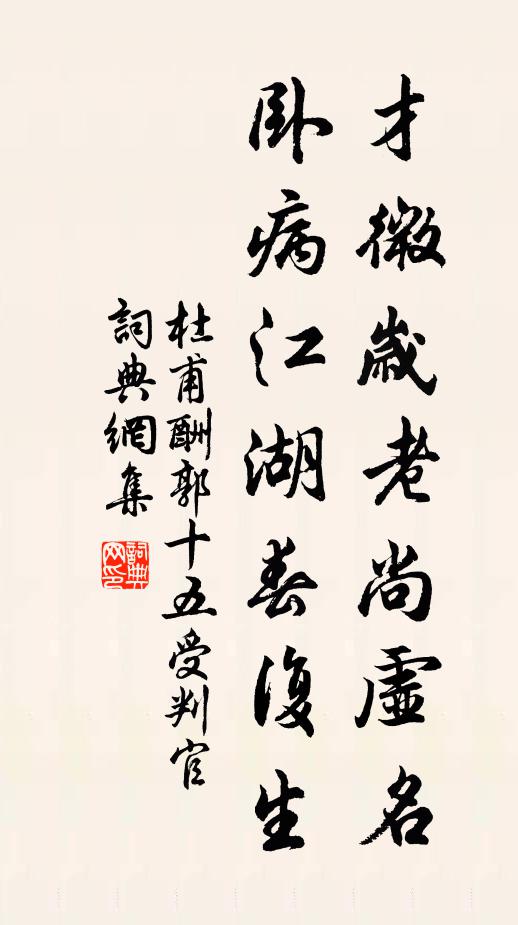 才微歲老尚虛名
卧病江湖春復生
杜甫酬郭十五受判官
詞典網集
詞典网印